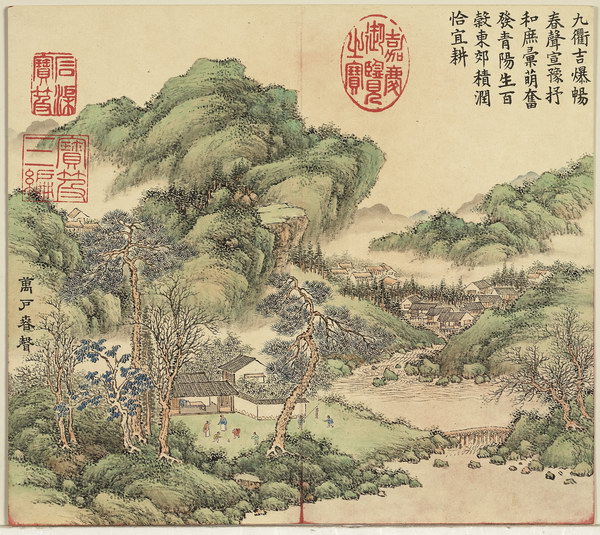 九衢吉爆暢
春聲宣豫抒
和庶彙萌奮
發青陽生百
穀東郊積潤
恰宜耕
嘉慶
御覽
之寶
石渠
寶笈
寶笈
三編
萬戶春聲